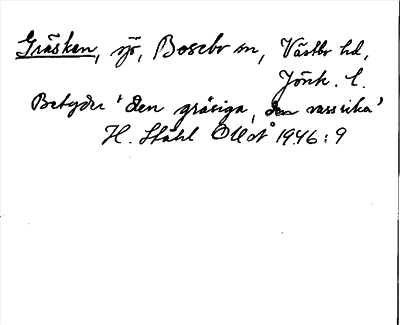 Gräsken, sjö, Bosebo sn, Västbo hd,
Jönk. l.
Betyder 'den gräsiga, den vassrika'
H. Ståhl OUoÅ 1946:9